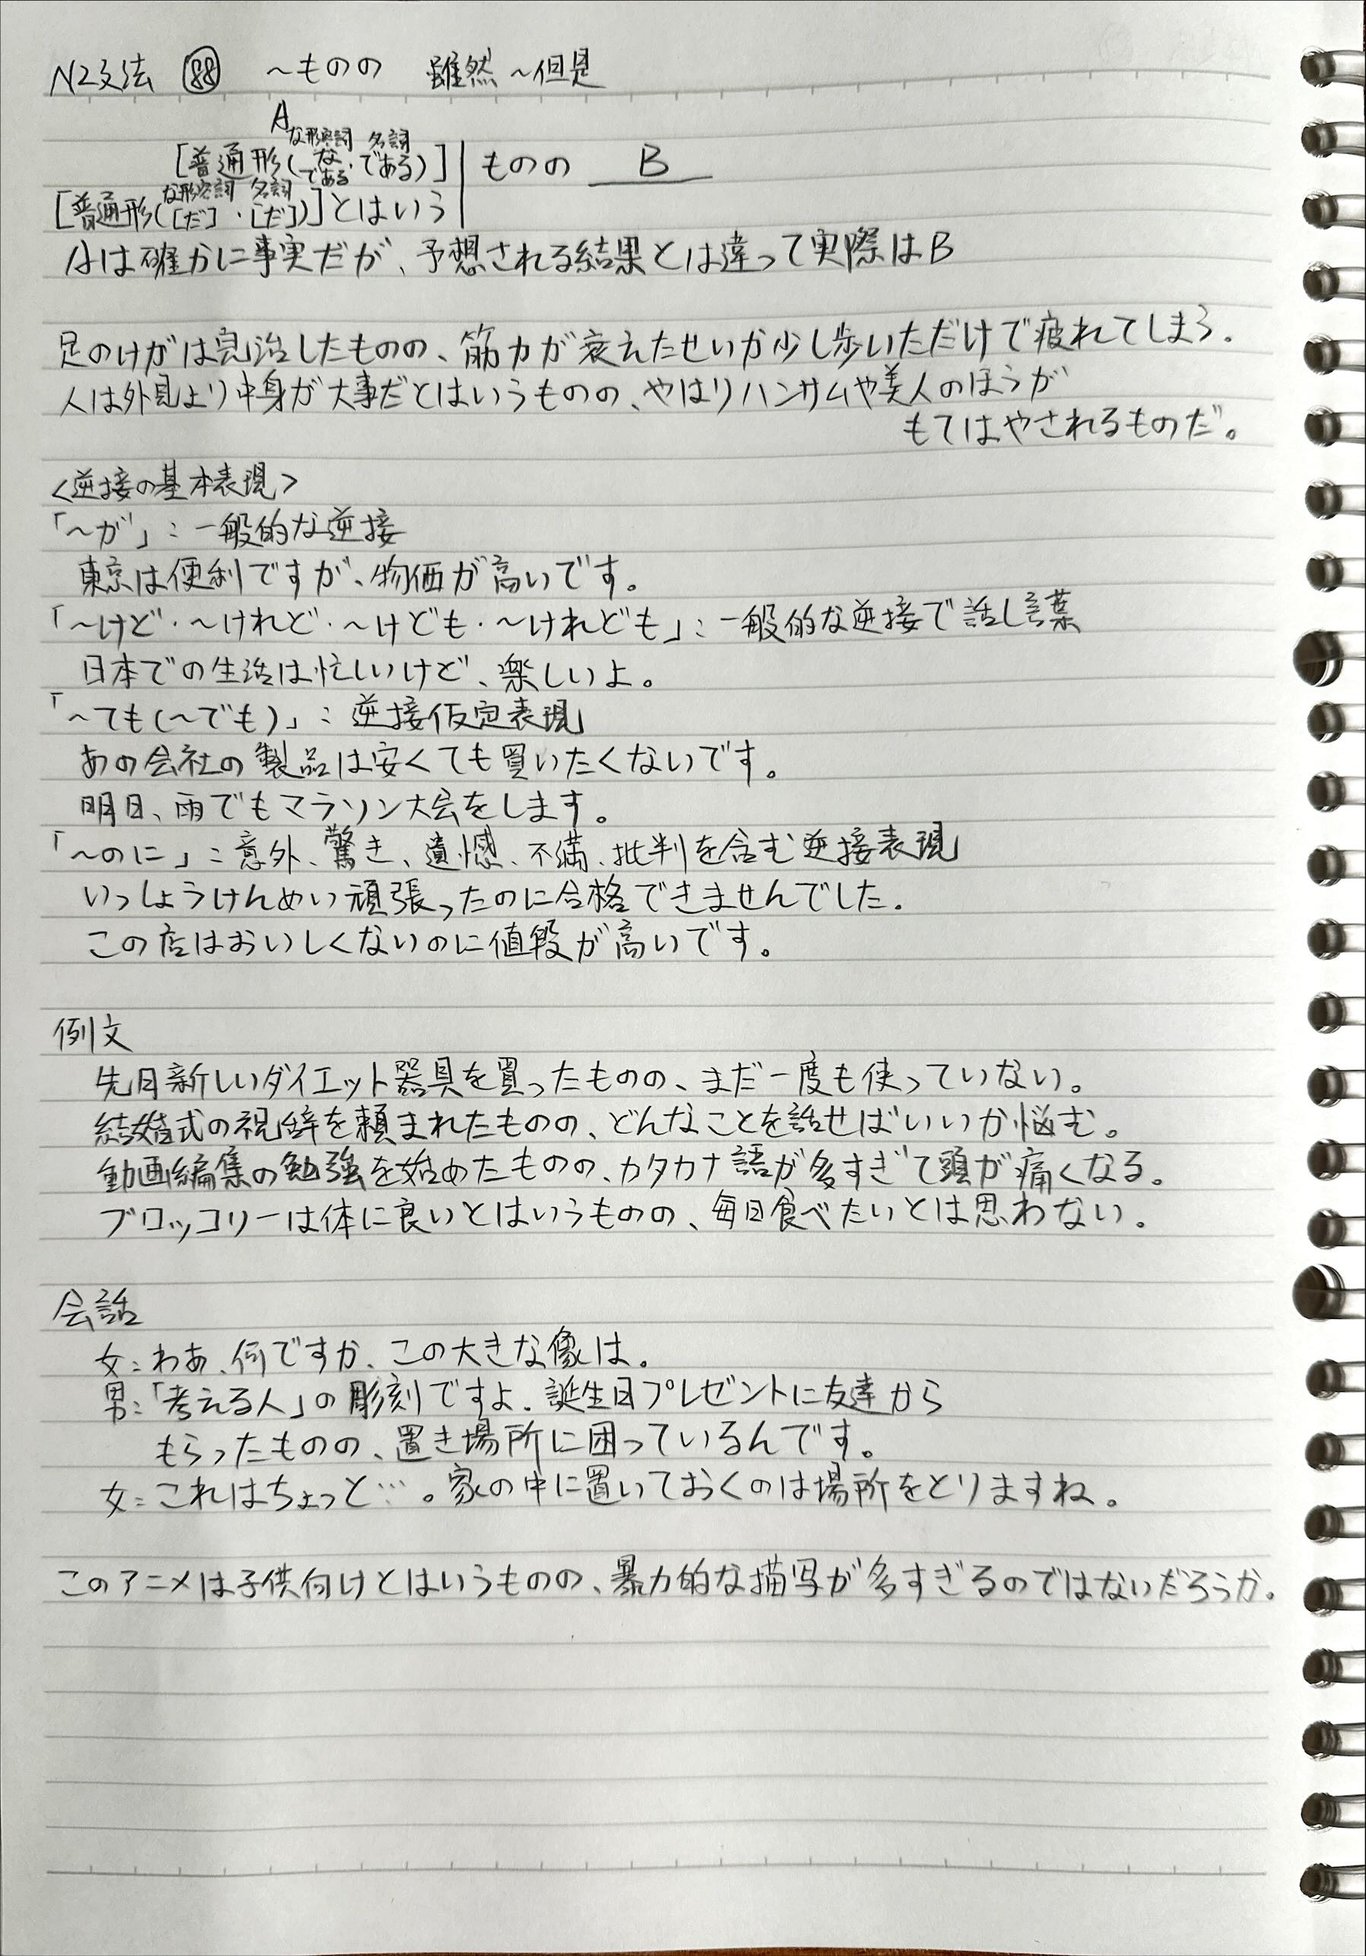 N2文法 ㊇㊇ ～ものの 雖然～但是
A
な形容詞 名詞
[普通形(な・である)] ものの B
である
な形容詞 名詞
[普通形([だ]・[だ])]とはいう
Aは確かに事実だが、予想される結果とは違って実際はB
足のけがは完治したものの、筋力が衰えたせいか少し歩いただけで疲れてしまう.
人は外見より中身が大事だとはいうものの、やはりハンサムや美人のほうが
もてはやされるものだ。
<逆接の基本表現>
「～が」：一般的な逆接
東京は便利ですが、物価が高いです。
「～けど・～けれど・～けども・～けれども」：一般的な逆接で話し言葉
日本での生活は忙しいけど、楽しいよ。
「～ても(～でも)」：逆接仮定表現
あの会社の製品は安くても買いたくないです。
明日、雨でもマラソン大会をします。
「～のに」：意外、驚き、遺憾、不満、批判を含む逆接表現
いっしょうけんめい頑張ったのに合格できませんでした.
この店はおいしくないのに値段が高いです。
例文
先月新しいダイエット器具を買ったものの、まだ一度も使っていない。
結婚式の祝辞を頼まれたものの、どんなことを話せばいいか悩む。
動画編集の勉強を始めたものの、カタカナ語が多すぎて頭が痛くなる。
ブロッコリーは体に良いとはいうものの、毎日食べたいとは思わない.
会話
女：わあ、何ですか、この大きな像は.
男：「考える人」の彫刻ですよ. 誕生日プレゼントに友達から
もらったものの、置き場所に困っているんです。
女：これはちょっと…。家の中に置いておくのは場所をとりますね。
このアニメは子供向けとはいうものの、暴力的な描写が多すぎるのではないだろうか。